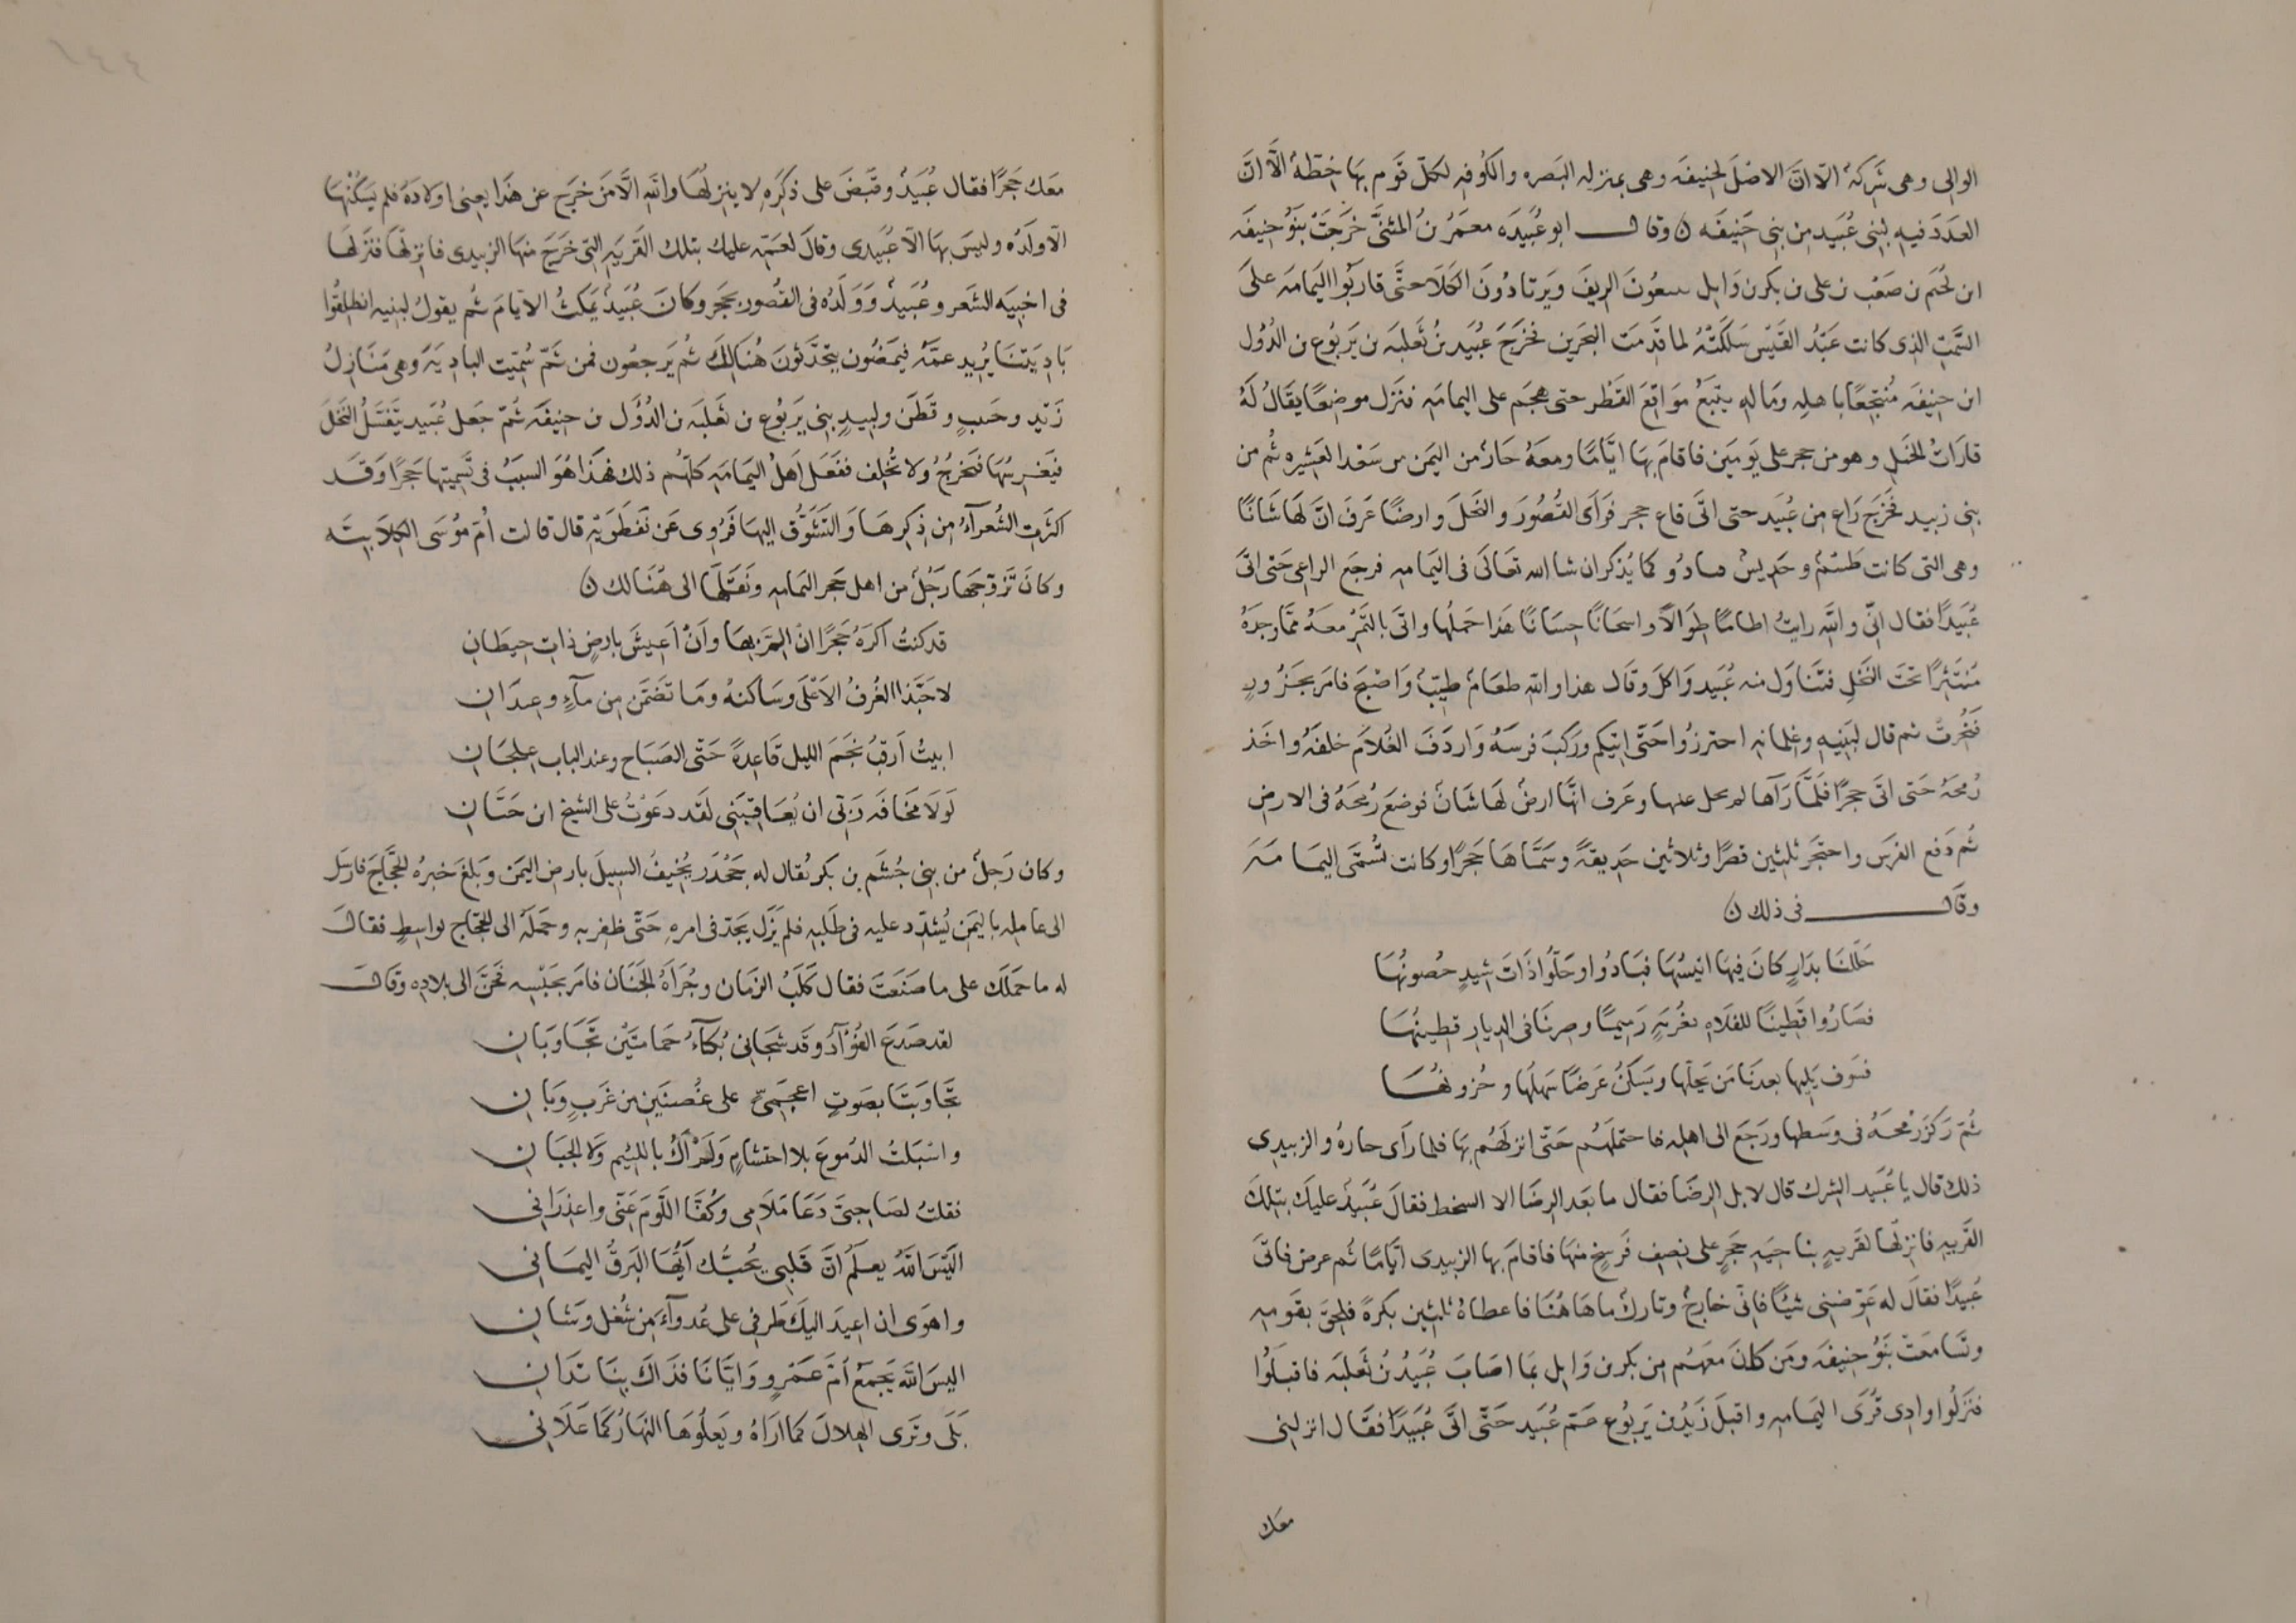 الوالى وهى شَرِكَةٌ الّا انّ الاصْلَ لحِنيفَه وهى بمنزله البَصره والكُوفه لكلّ قَومٍ بهَا خِطّةٌ الّا انّ
العدَدَ فيهِ لبنى عُبَيد مِن بنى حَنيفَه ن وقال ابو عُبَيدَه معمَرُ نُ المثنَّى خرَجَتْ بنَوُ حنيفَه
ابن لُجَيم ن صَعْب ن على ن بكرن وَايل يتبعُونَ الريفَ ويَرتادُونَ الكَلاَ حتَّى قاربُوا اليَمامَه علىَ
السَّمتِ الذى كانت عَبْدُ القَيْس سَلَكَتْهُ لما قدِمَت البَحرَين فخَرَجَ عُبَيد نُ ثَعلبَه ن يَربُوع ن الدُؤل
ابن حنيفَه مُنتجِعًا باهلِه ومَالهِ يتبعُ مَوَاقِعَ القَطْر حتى هجَم على اليمَامَه فنَزَل موضعًا يقَالُ لهُ
قارَاتُ الخيلِ وهو من حجر على يَومَين فاقامَ بهَا ايَّامًا ومعَهُ جَارٌ من اليَمن من سَعْد العَشِيره ثُم من
بنى زبيد فَخرَجَ رَاعٍ مِن عُبَيد حتى اتَى قاع حجر فَرَأى القُصُورَ والنخلَ وارضًا عَرفَ انّ لهَا شَانًا
وهى التى كانت طَسْمٌ وجَدِيسٌ بادُو كما يُذكَر ان شا الله تعَالَى فى اليَمامه فرجَع الراعى حَتى اتَى
عُبَيدًا فقال انّى واللهِ رايتُ اطامًا طِوَالاً واشجَارًا حِسَانًا هذا حَملُها واتَى بالتَّمْرِ معَهُ ممّا وجَدَهُ
مُنتَثِرًا تحتَ النخْلِ فتنَاوَل منه عُبَيد وَاكلَ وقَال هذا واللهِ طعَامٌ طيبٌ وَاصْبَحَ فامَر بجَزُورٍ
فَنُحِرتْ ثم قال لبنيهِ وغِلمانهِ احترزُوا حَتّى اتيكم ورَكبَ فرسَهُ وَاردَفَ الغُلاَم خلفَهُ واخَذ
رُمحَهُ حَتى اتَى حجرًا فلمَّا رَآها لم يحل عنها وعَرف انّها ارضٌ لهَا شَانٌ فوضَع رُمحَهُ فى الارضِ
ثُم دَفع الفرَس واحتَجَر ثلثين قصرًا وثلاثين حَدِيقةً وسَمَّاهَا حَجرًا وكانت تُسَمَّى اليمَامَه
وقال فى ذلك ن
حَلَلنَا بدَارٍ كانَ فِيهَا انيسُهَا فبَادُوا وحَلّوُا ذَاتَ شِيدٍ حصُونُها
فصَارُوا قطِينًا للفَلاهِ بغُربَهٍ رَمِيمًا وصِرنَا فى الدِيارِ قطِينُهَا
فسَوف يَلِيها بعدَنَا مَن يَحلّها ويَسكُنُ عَرضًا سَهلُهَا وحُزونُهَا
ثمّ رَكزَ رُمحَهُ فى وسَطها ورَجَع الى اهلِه فاحتملَهُم حَتّى انزلَهُم بهَا فلما رَأى جارهُ والزبيدى
ذلك قال يا عُبَيد الشرك قال لا بل الرِضَا فقال ما بَعد الرِضَا الا السخط فقالَ عُبَيدٌ عليكَ بتلكَ
القَريهِ فانزلهَا لقَريهٍ بناحِيَه حَجرٍ على نصِف فَرسَخٍ منهَا فاقامَ بها الزبيدى ايّامًا ثُم عرض فاتَى
عُبيدًا فقَال له عَوّضنى شيًا فانّى خارجٌ وتاركٌ ماهَاهُنَا فاعطاهُ ثلثين بكرةً فلحِقَ بقَومِه
وتسَامعَت بَنوُ حنيفَه ومَن كانَ معَهُم مِن بكرن وَايل بمَا اصَابَ عُبَيدُ نُ ثَعلبَه فاقبَلُوا
فنَزلُوا وادِى قُرَى اليَمامهِ واقبلَ زَيدُ ن يَربُوع عَمّ عُبَيد حَتّى اتَى عُبَيدًا فقَال انزلنى
معك
معَك حَجرًا فقال عُبَيدٌ وقبَضَ على ذَكَرِهِ لا ينزلهَا واللهِ الّا مَن خرَج عن هَذا يعنى اولادَهُ فلم يَسكُنْهَا
الّا ولَدُه وليسَ بهَا الّا عُبَيدى وقالَ لعَمّهِ عليك بتلك القَريَهِ التى خَرَجَ منهَا الزبيدى فانزلهَا فنَزَلهَا
فى اخبيَه الشعَر وعُبَيدٌ وَوَلَدُه فى القُصُور بحَجر وكانَ عُبَيدٌ يَمكثُ الايّامَ ثُم يقولُ لبنيهِ انطلِقُوا
بَادِيَتنَا يُرِيد عمَّهُ فيمَضُون يتحَدّثونَ هُنَالِكَ ثم يَرجعُون فمن ثَمّ سُمّيَت البادِيَهَ وهى مَنَازلُ
زَيدٍ وحَبيبٍ وقَطَن ولبيدٍ بنى يَربُوع ن ثَعلبَه ن الدُؤَل ن حنيفَه ثُمّ جَعل عُبَيد يَفْسِلُ النخلَ
فيَغرِسُهَا فتخرجُ ولا تُخلِف ففَعَل اَهلُ اليَمامَه كلّهُم ذلك فهَذا هُوَ السبَبُ فى تَسميتها حَجرًا وَقد
اكثرت الشُعَرآءُ مِن ذِكرِهَا وَالتشَوُّق اليهَا فرُوِى عَن نفطَوَيْهِ قال قالت اُمّ مُوسَى الكِلاَبيّه
وكانَ تَزوّجَهَا رَجُلٌ من اهل حَجر اليَمامه ونَقَلَهَا الى هُنَالك ن
قد كنتُ اكرَهُ حَجرًا ان اَلُمَّ بهَا وَاَنْ اَعِيشَ بارضٍ ذاتِ حِيطَانِ
لاحَبّذا الغُرفُ الاَعْلَى وسَاكنهُ ومَا تَضَمّنَ مِن مآءٍ وعِيدَانِ
ابيتُ اَرقبُ نجْمَ الليلِ قَاعِدةً حَتّى الصَبَاح وعند الباب عِلجَانِ
لَولَا مَخافَهَ رَبّى ان يُعَاقِبَنى لقَد دعَوتُ على الشيخِ ابن حَيَّانِ
وكان رَجلٌ من بنى جُشَم بن بكر يُقال له جَحْدَر يُخِيفُ السبيلَ بارضِ اليَمَن وبَلغَ خبرُه الحجَّاجَ فارسَل
الى عاملِه باليَمن يُشدّد عليه فى طلَبِهِ فلم يَزَل يَجدّ فى امرهِ حَتّى ظفِربهِ وحَمَلَهُ الى الحجّاج بواسِطٍ فقال
له ما حَمَلك على ما صَنَعت فقال كَلَبُ الزمان وجُرأةُ الجَنَان فامَر بحَبْسِه فحَنَّ الى بلادِه وقال
لقد صَدَعَ الفُؤَآد وقَد شجَانى بُكآءُ حَمامتَيْن تجَاوبَانِ
تجَاوبَتَا بصَوتٍ اعجَمِىٍّ على غُصنَين مِن غَربٍ وَبَانِ
واسْبَلتُ الدمُوعَ بلا احتشامٍ وَلَم اَكُ باللئيم ولا الجبَانِ
فقلتُ لصَاحِبىَّ دَعَا مَلَامى وكُفّا اللَّومَ عَنّى واعذرَانى
اَليَسَ اللهُ يعلَمُ انَّ قَلبى يُحبُّك اَيُّهَا البَرقُ اليمَانى
واهوَى ان اعِيدَ اليكَ طَرفى على عُدوآءَ مِن شُغل وَشانِ
اليسَ اللهُ يَجمعُ اُمّ عَمْرٍو وَايَّانَا فذَاكَ بنَا تَدَانِ
بَلَى وتَرى الهِلالَ كما ارَاهُ ويَعلُوهَا النهَارُ كمَا عَلَانى